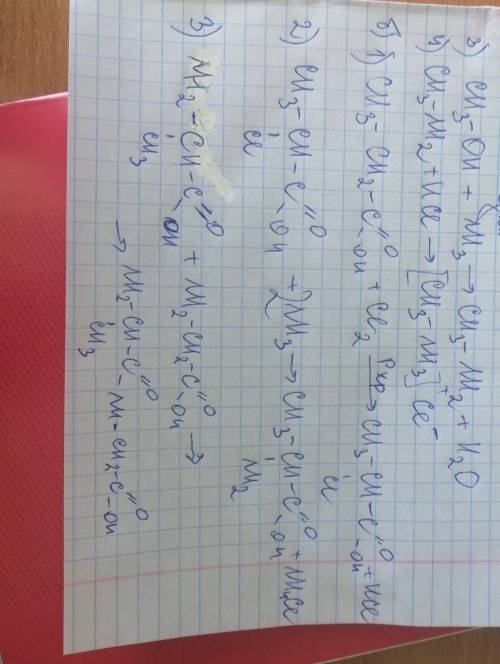 3) CH3-OH + NH3 → CH3-NH2 + H2O
4) CH3-NH2 + HCl → [CH3-NH3]⁺Cl⁻
б) 1) CH3-CH2-C(=O)-OH + Cl2 –Pкр→ CH3-CH(Cl)-C(=O)-OH + HCl
2) CH3-CH(Cl)-C(=O)-OH + 2NH3 → CH3-CH(NH2)-C(=O)-OH + NH4Cl
3) NH2-CH(CH3)-C(=O)-OH + NH2-CH2-C(=O)-OH →
→ NH2-CH(CH3)-C(=O)-NH-CH2-C(=O)-OH